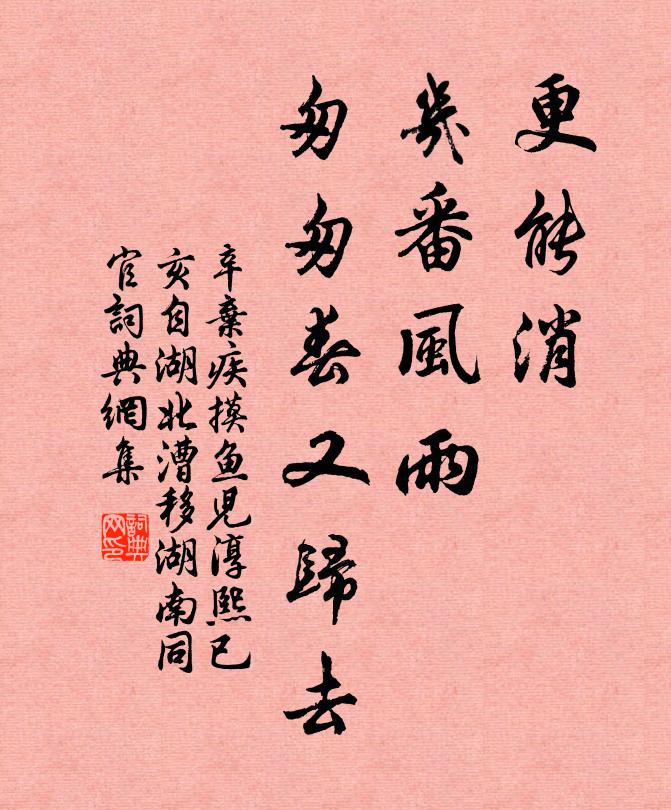 更能消
幾番風雨
匆匆春又歸去
辛棄疾摸魚兒淳熙已
亥自湖北漕移湖南同
官詞典網集
詞典
网印